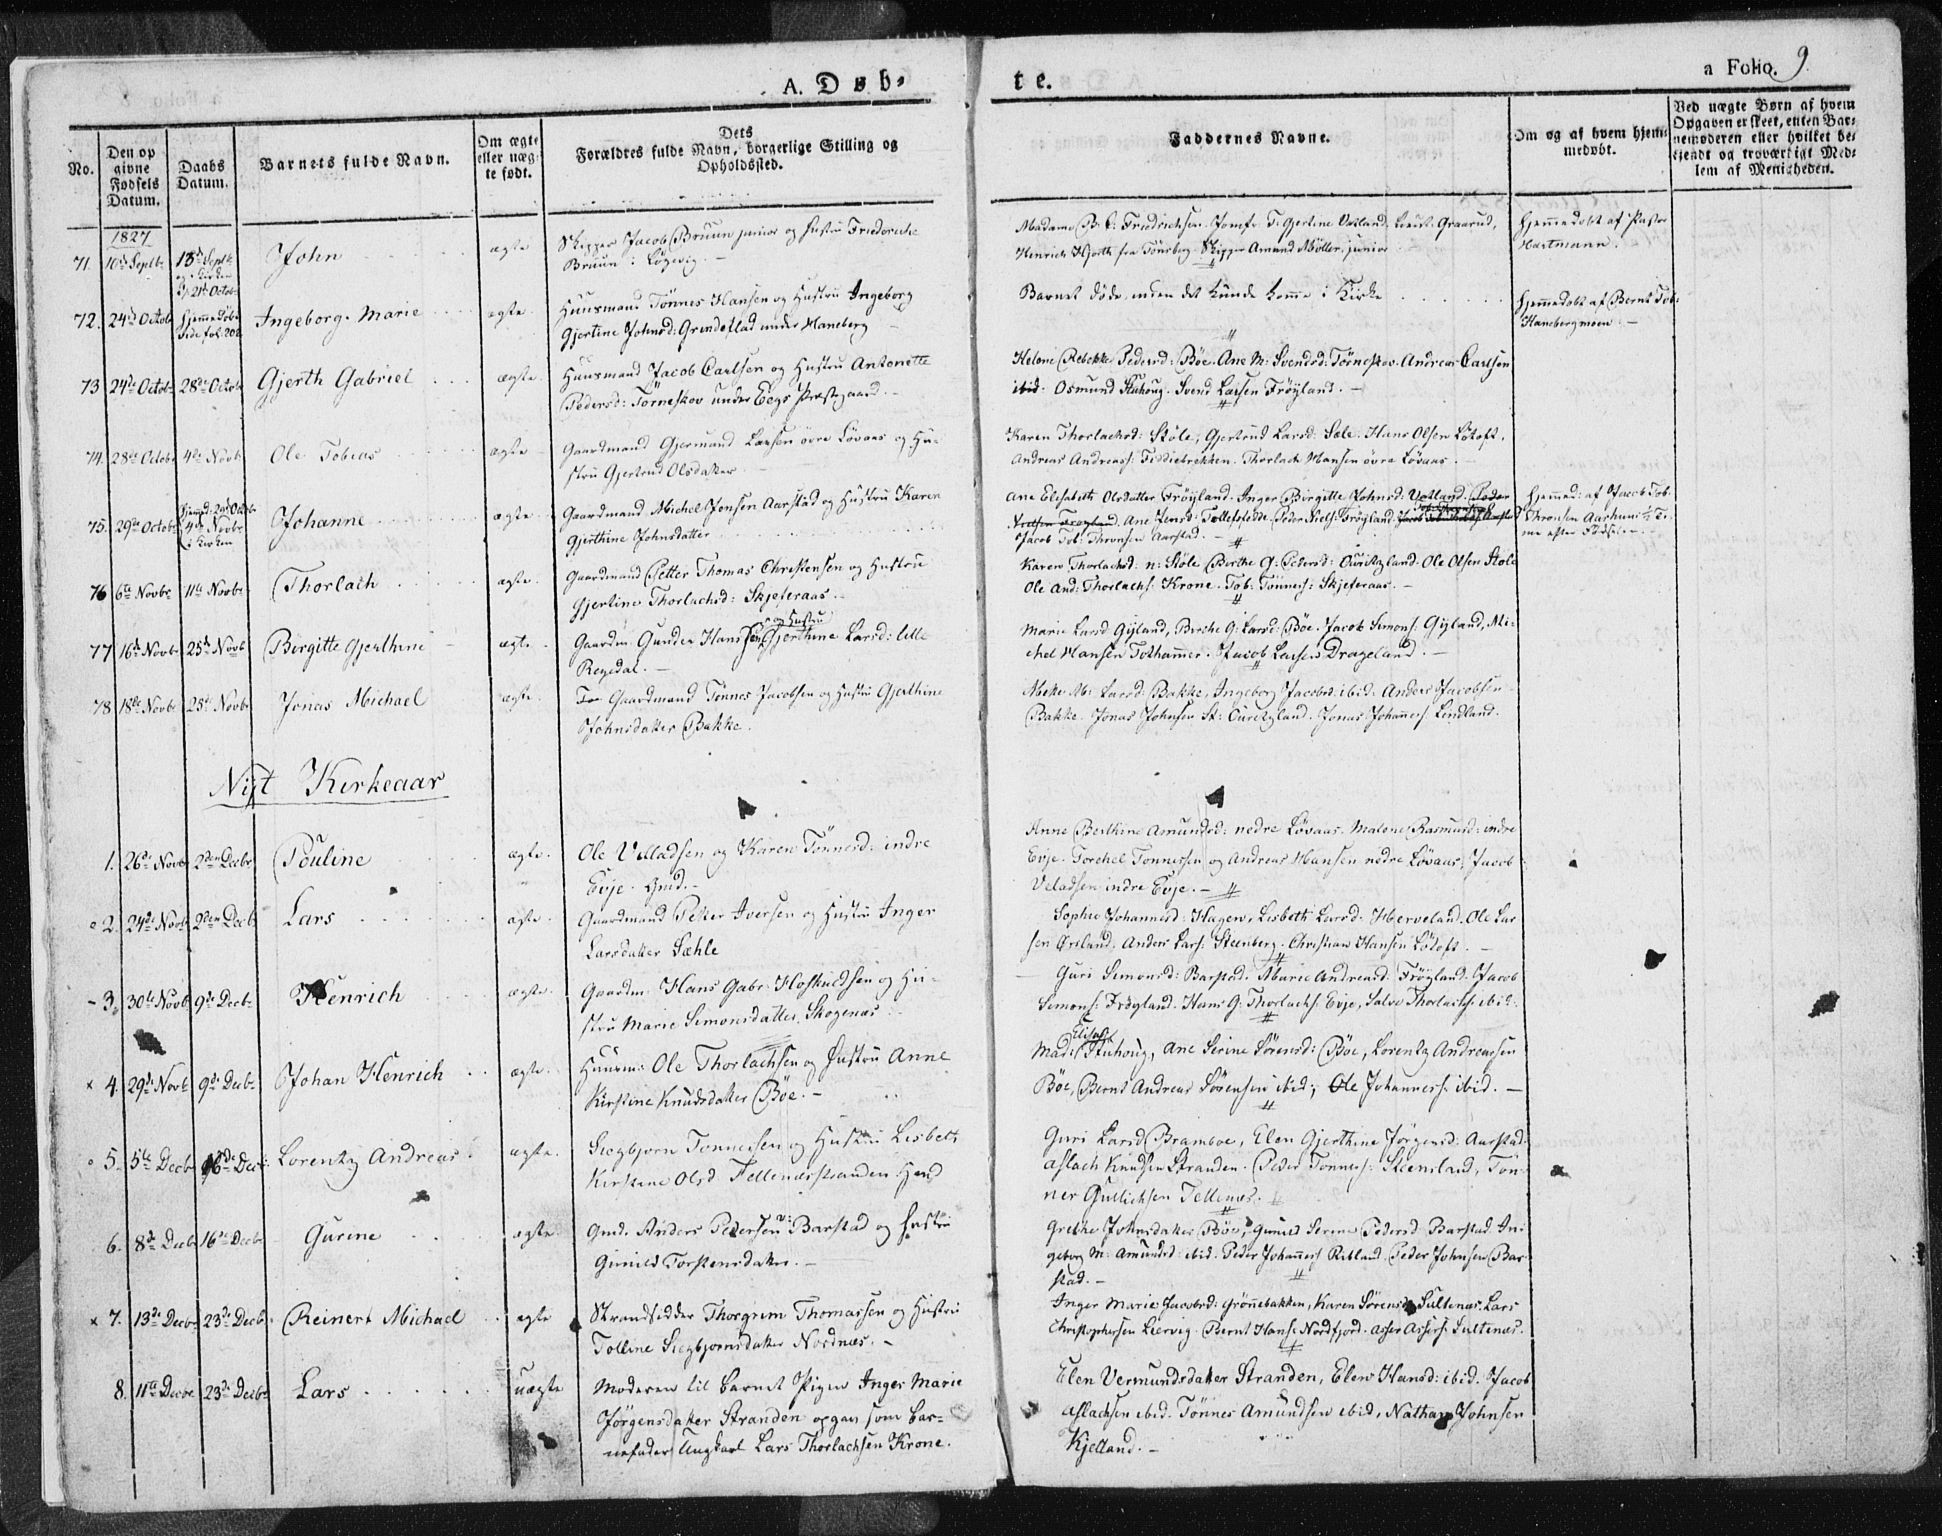 A. Døb-
te.
a Folio. 9
No.
Den op
givne
Fødsels
Datum.
Daabs
Datum.
Barnets fulde Navn.
Om ægte
eller uæg-
te født.
Dets
Forældres fulde Navn, borgerlige Stilling og
Opholdssted.
Faddernes Navne.
Om og af hvem hjem-
medøbt.
Ved uægte Børn af hvem
Opgaven er skeet, enten Bar-
nemoderen eller hvilket be-
kjendt og troværdigt Med-
lem af Menigheden.
1827
71. 10de Septbr 13de Septbr John ægte Skipper Jacob Bruun junior og Hustru Friederiche
i Kirken
21de Octob
Bruun i Løgevig. –
Madame Friedrichsen. Jomfr. T. Gjertine Vatland. Lieut. Graarud,
Henrich Hjorth fra Tønsberg. Skipper Amund Möller junior
Hjemmedøbt af Pastor
Hartmann.
72. 24de Octob Hjemmedøbt Ingeborg Marie ægte Huusmand Tönnes Hansen og Hustru Ingeborg
Side fol. 202
Gjertine Johnsd: Grindeslad under Haneberg
Barnet døde inden det kunde komme i Kirke
Hjemmedøbt af Bernt Tob:
Hanebergmoen. –
73 24de Octob 28de Octob Gjerth Gabriel ægte. Huusmand Jacob Carlsen og Hustru Antonette
Pedersd: Torneskov under Eegs Præstegaard. –
Helene Rebekke Pedersd: Bøe. Ane M: Svendsd: Torneskov. Andreas Carlsen
ibid. Osmund Stuhoug. Svend Larsen Fröyland. –
74. 28de Octobr 4de Novbr Ole Tobias ægte Gaardmand Gjermund Larsen övre Lövaas og Hu-
stru Gjertrud Olsdatter
Karen Thorlachsd: Stöle, Gjertrud Larsd: Sæle. Hans Olsen Lötoft,
Andreas Andreass: Fidiebrekken. Thorlach Hansen övre Lövaas. –
75. 29de Octobr Hjemmed: 29de Octob Johanne ægte Gaardmand Michel Jensen Aarstad og Hustru Karen
4de Novbr
i Kirken
Gjerthine Johnsdatter
Ane Elisabeth Olsdatter Fröyland. Inger Birgitte Johnsd: Vatland. Peder
Nielsen Fröyland. Ane Jensd: Tollefsfeldt. Peder Niels: Frögland
Jacob Tob: Thronsen Aarstad. –
Hjemmed: af Jacob Tob:
Thronsen Aarhuus ½ Ti-
me efter Födselen.
76 6te Novbr 11te Novbr Thorlach ægte. Gaardmand Petter Thomas Christensen og Hustru
Gjertine Thorlachsd: Skjeferaas. –
Karen Thorlachsd: n: Stöle, Birthe G: Pedersd: Ouritzland. Ole Olsen Stole
Ole And: Thorlachs: Krone. Tob: Tönness: Skjeferaas. –
77 16de Novbr 25de Novb Birgitte Gjerthine ægte Gaardm Gunder Hansen og Hustru Gjerthine Larsd: lille
Regedal. –
Marie Larsd Gyland, Berthe G: Larsd: Bøe. Jacob Simons: Gyland, Mi-
chel Hansen Tothammer. Jacob Larsen Drageland. –
78 18de Novbr 25de Novbr Jonas Michael ægte Gaardmand Tönnes Jacobsen og Hustru Gjerthine
Johnsdatter Bakke.
Meke M: Larsd: Bakke, Ingeborg Jacobsd: ibid. Anders Jacobsen
Bakke. Jonas Johnsen St: Ouritzland. Jonas Johanness: Lindland.
Nyt Kirkeaar
1. 26de Novbr 2den Decbr Pouline ægte. Ole Velladsen og Karen Tönnesd: indre
Evje. Gmd. –
Anne Berthine Amundsd: nedre Lövaas. Malene Rasmusd: indre
Evje. Torchel Tonnessen og Andreas Hansen nedre Lövaas, Jacob
Veladsen indre Evje. –
2. 24de Novbr 2den Decb Lars ægte. Gaardmand Peter Iversen og Hustru Inger
Larsdatter Sæhle
Sophie Johannesd: Hagen, Lisbeth Larsd: Herveland. Ole Lar
sen Orsland. Anders Lars: Steenberg. Christian Hansen Lötoft. –
3. 30te Novb 9de Decbr Henrich ægte. Gaardm: Hans Gabr: Hoskuldsen og Hu-
stru Marie Simonsdatter Skogenæs.
Guri Simonsd: Barstad. Marie Andreasd: Frögland. Jacob
Simons: Frögland. Hans G: Thorlachs: Evje, Salve Thorlachs: ibid.
4. 29de Novb 9de Decbr Johan Henrich ægte. Huusm: Ole Thorlachsen og Hustru Anne
Kirstine Knudsdatter Bøe. –
Mad: Elisab: Stuhoug, Ane Serine Sörensd: Böe, Lorentz Andreassen
Böe, Bernt Andreas Sörensen ibid; Ole Johanness: ibid. –
5. 5te Decbr 16de Decbr Lorentz Andreas ægte. Siegbjorn Tonnessen og Hustru Lisbeth
Kirstine Olsd Tellenæsstranden
Guri Larsd Bramboe, Elen Gjerthine Jörgensd: Aarstad
Aslach Knudsen Stranden. Peder Tonness: Steensland, Ton-
nes Gullichsen Tellenæs.
6. 8de Decb 16de Decbr Gurine ægte. Gmd. Anders Pedersen Barstad og Hustru
Gunild Torstensdatter. –
Grethe Johnsdatter Böe, Gunild Serine Pedersd Barstad. In-
geborg M: Amundsd: ibid. Peder Johanness Rebland. Peder Johnsen Bar-
stad. –
7. 13de Decbr 23de Decb Reinert Michael ægte Strandsidder Thorgrim Thomassen og Hustru
Tolline Siegbjornsdatter Nordnæs. –
Inger Marie Jacobsd: Grönnebakken, Karen Sörensd: Sultenæs. Lars
Christophersen Liervig. Bernt Hans: Nordfjord. Asser Assers: Sultenæs.
8. 11te Decbr 23de Decbr Lars uægte Moderen til Barnet Pigen Inger Marie
Jörgensdatter Stranden opgav som Bar-
nefader Ungkarl Lars Thorlachsen Krone.
Elen Vermundsdatter Stranden, Elen Hansd: ibid. Jacob
Aslachsen ibid. Tönnes Amundsen ibid, Nathan Johnsen
Kjelland. –